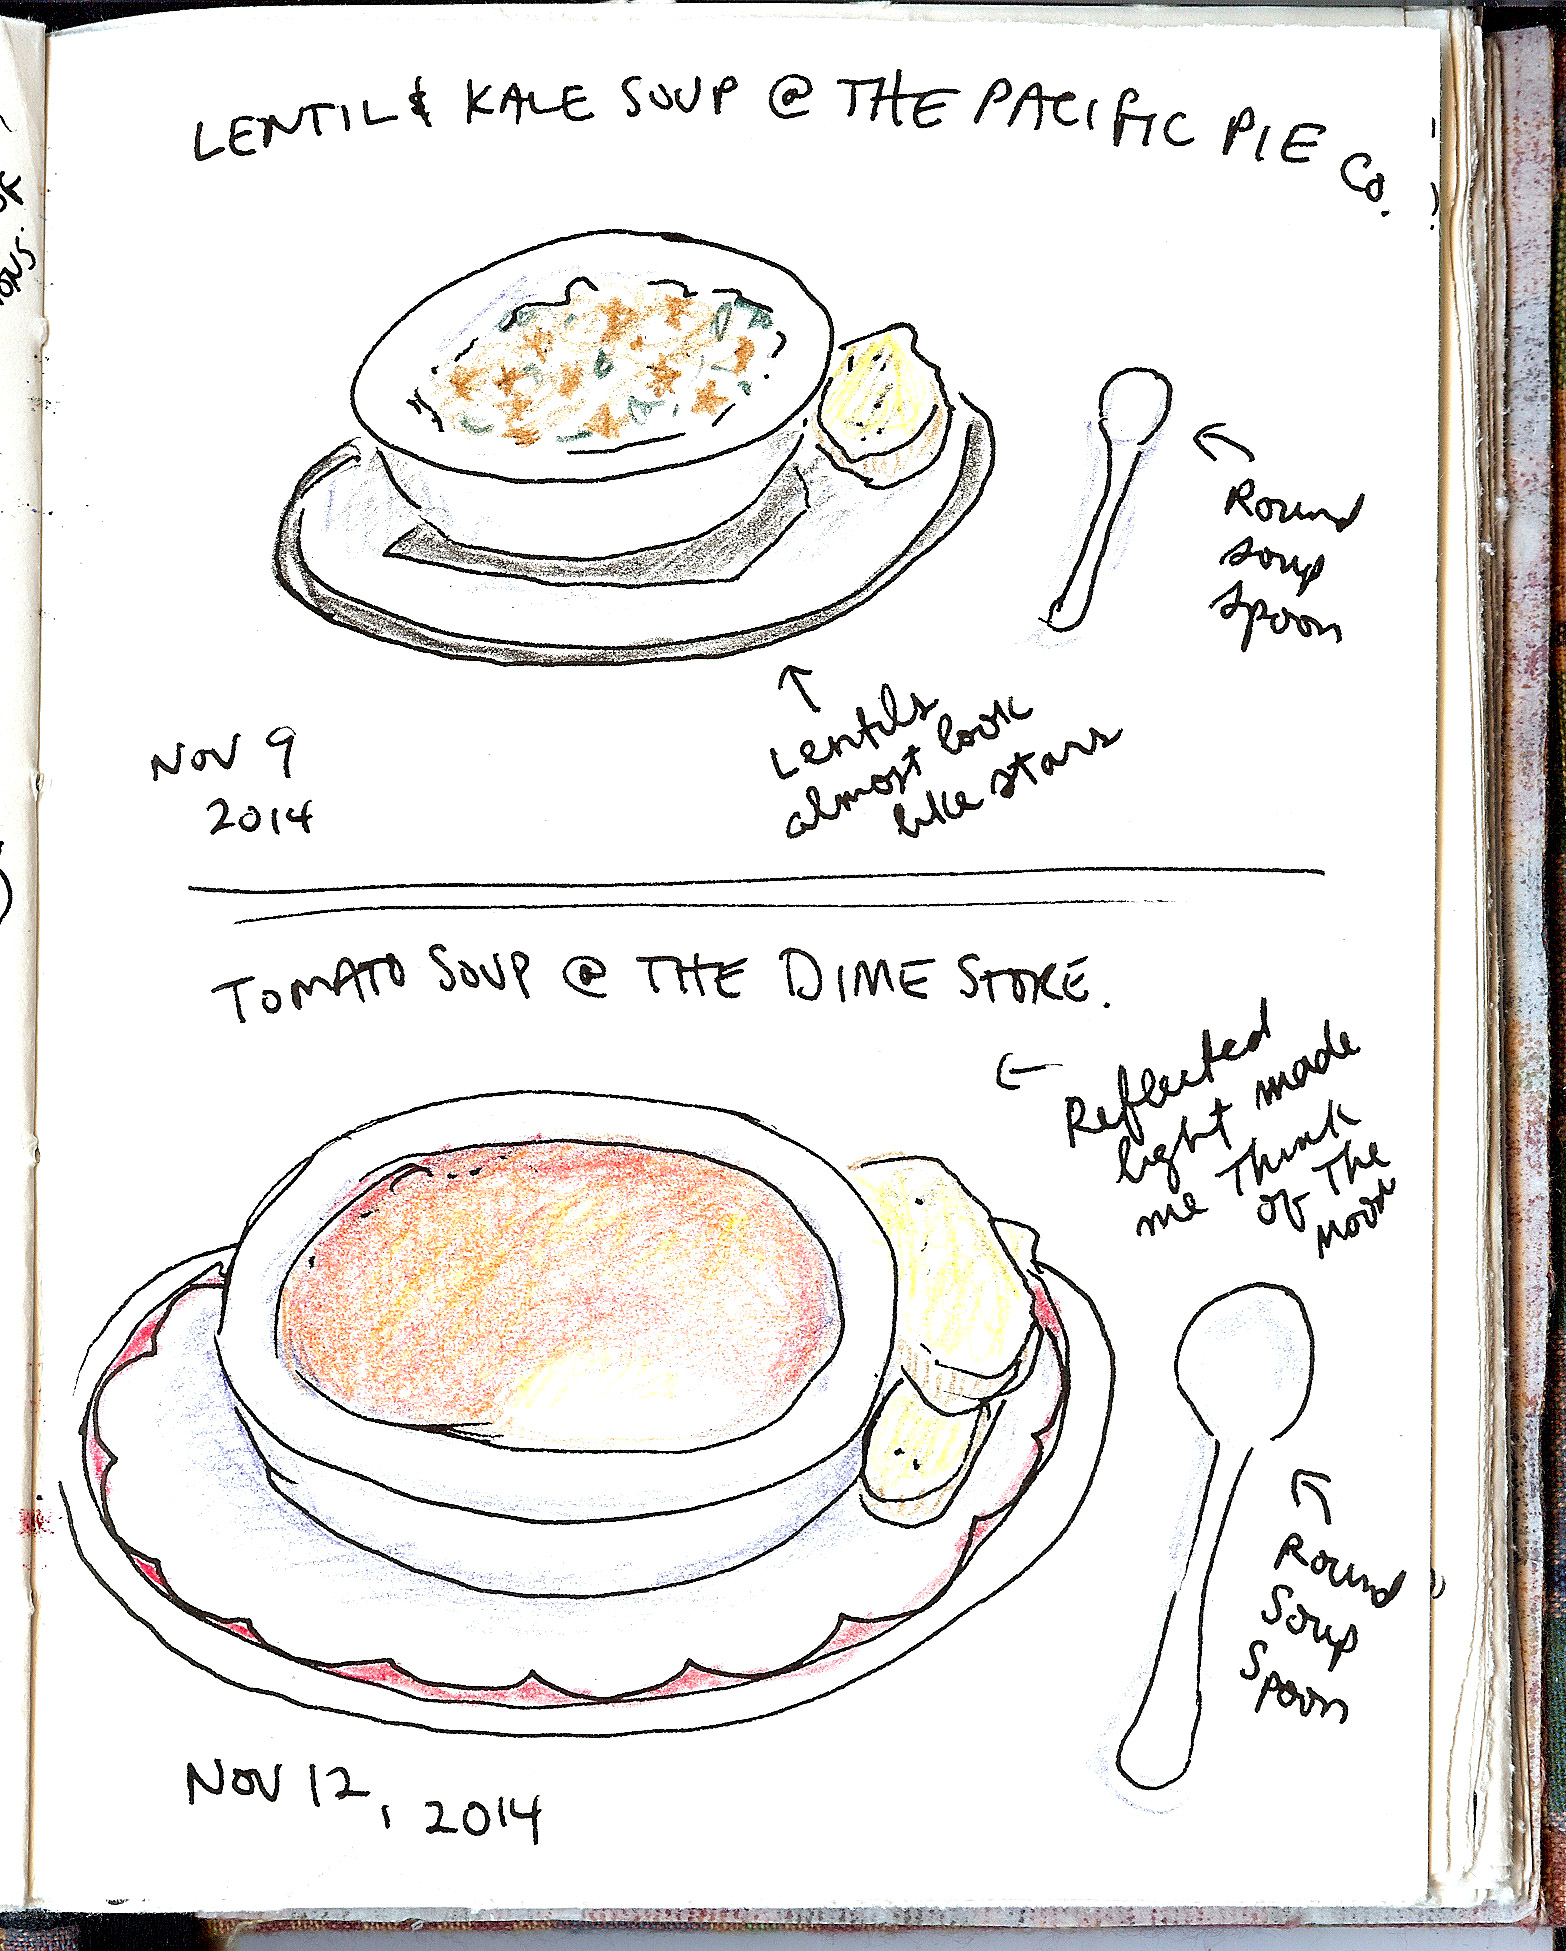 LENTIL & KALE SOUP @ THE PACIFIC PIE Co.
Round
soup
spoon
Lentils
almost look
like stars
NOV 9
2014
TOMATO SOUP @ THE DIME STORE.
Reflected
light made
me think
of the
moon
Round
Soup
Spoon
NOV 12, 2014